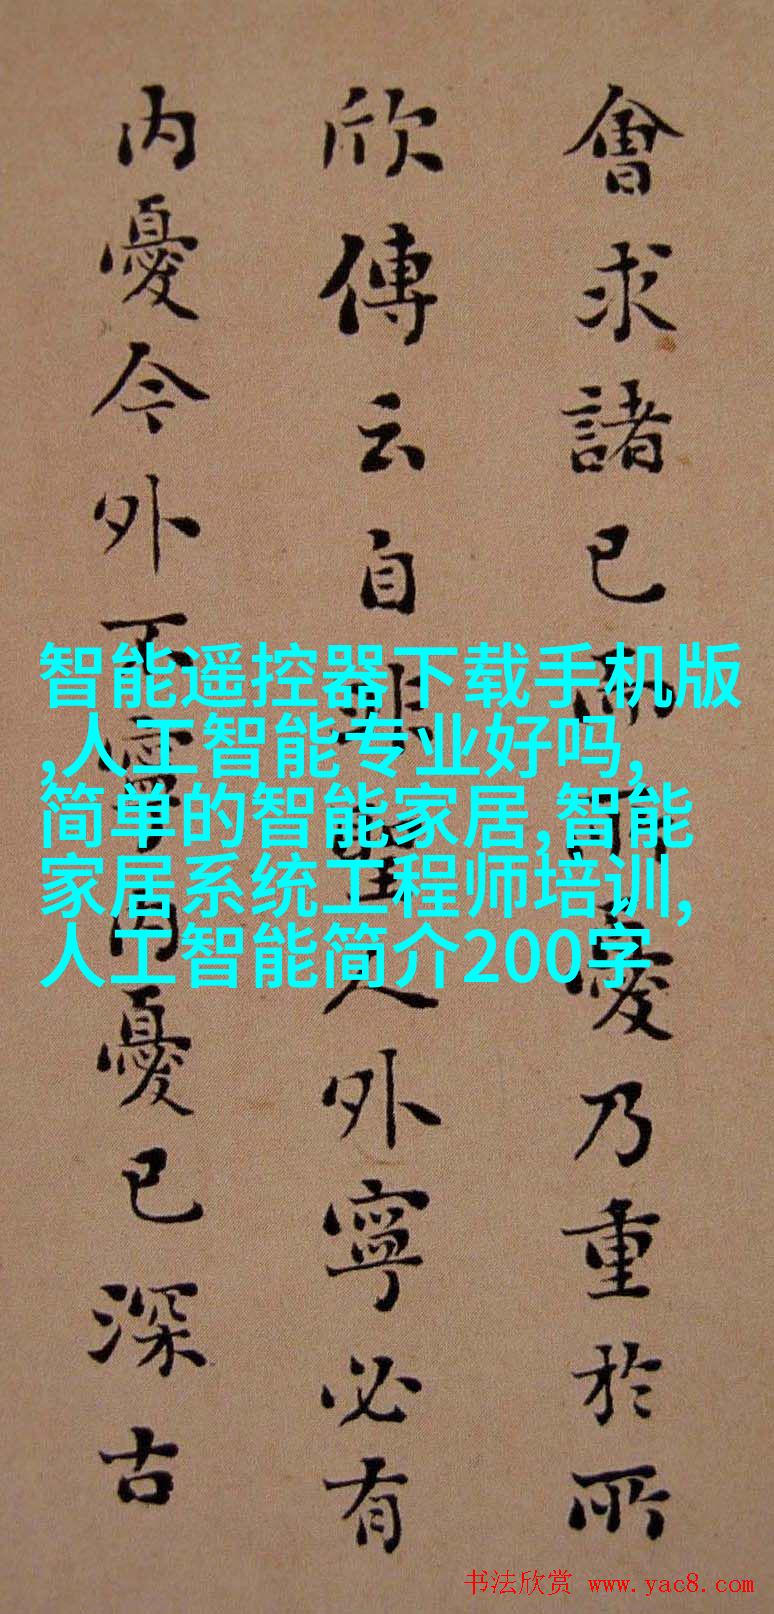 會求諸已而所憂乃重於所
欣傳云自非聖人外寧必有
内憂今外不寧内憂已深古
智能遥控器下载手机版
,人工智能专业好吗,
简单的智能家居,智能
家居系统工程师培训,
人工智能简介200字
书法欣赏 www.yac8.com